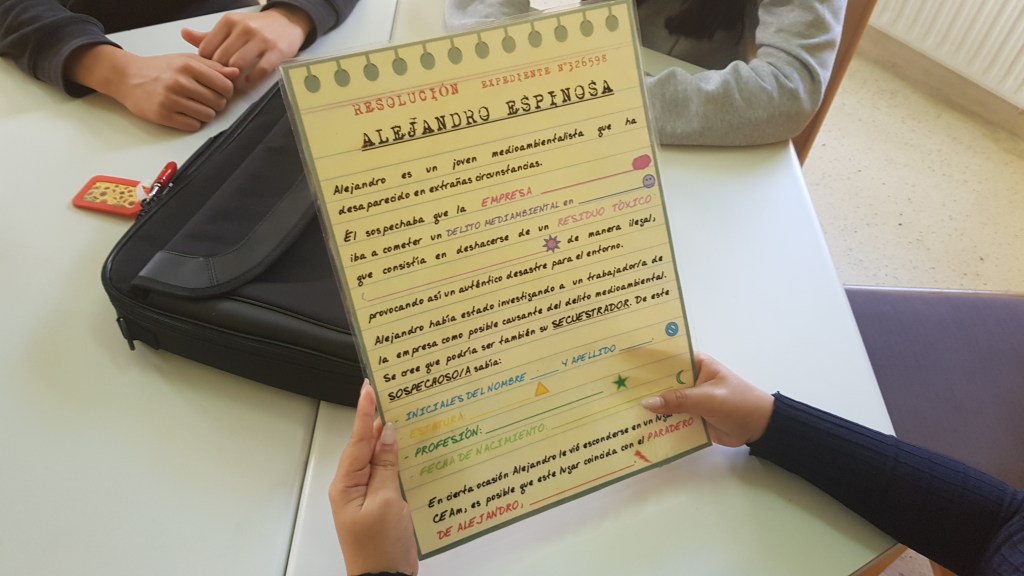 RESOLUCIÓN EXPEDIENTE Nº326598
ALEJANDRO ESPINOSA
Alejandro es un joven medioambientalista que ha
desaparecido en extrañas circunstancias.
Él sospechaba que la EMPRESA
iba a cometer un DELITO MEDIAMBIENTAL en
que consistía en deshacerse de un RESIDUO TÓXICO
de manera ilegal,
provocando así un auténtico desastre para el entorno.
Alejandro había estado investigando a un trabajador/a de
la empresa como posible causante del delito medioambiental.
Se cree que podría ser también su SECUESTRADOR. De este
SOSPECHOSO/A sabía:
. INICIALES DEL NOMBRE ____ Y APELLIDO ____.
. ESTATURA
. PROFESIÓN:
. FECHA DE NACIMIENTO:
En cierta ocasión Alejandro le vió esconderse en un lugar
CEAm, es posible que este lugar coincida con el PARADERO
DE ALEJANDRO,